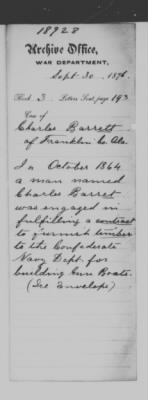 18928
Archive Office,
WAR DEPARTMENT,
Sept. 30, 1876.
Book 3 Letters Sent, page 193
Case of
Charles Barrett
of Franklin Co. Ala.
In October 1864
a man named
Charles Barret
was engaged in
fulfilling a contract
to furnish timber
to the Confederate
Navy Dept. for
building Gun Boats.
(See Envelope)